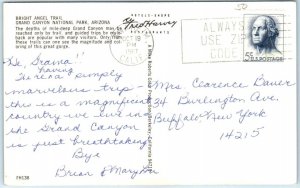 50
BRIGHT ANGEL TRAIL
GRAND CANYON NATIONAL PARK, ARIZONA
The depths of mile-deep Grand Canyon may be
reached only by trail, and guided trips by
back are popular with many visitors. Only from
these trails can one see the magnitude and col-
oring of this great gorge.
Fred Harvey
PM
CALIF
ALWAYS
USE ZIP
CODE
5¢
Hi, Grama!
having
We're a simply
marvelous trip -
this is a magnificent
country we live in -
the Grand Canyon
is just breathtaking
Bye
Brian & Marylou
Mrs Clarence Bauer
34 Burlington Ave.
Buffalo New York
14215
FH138